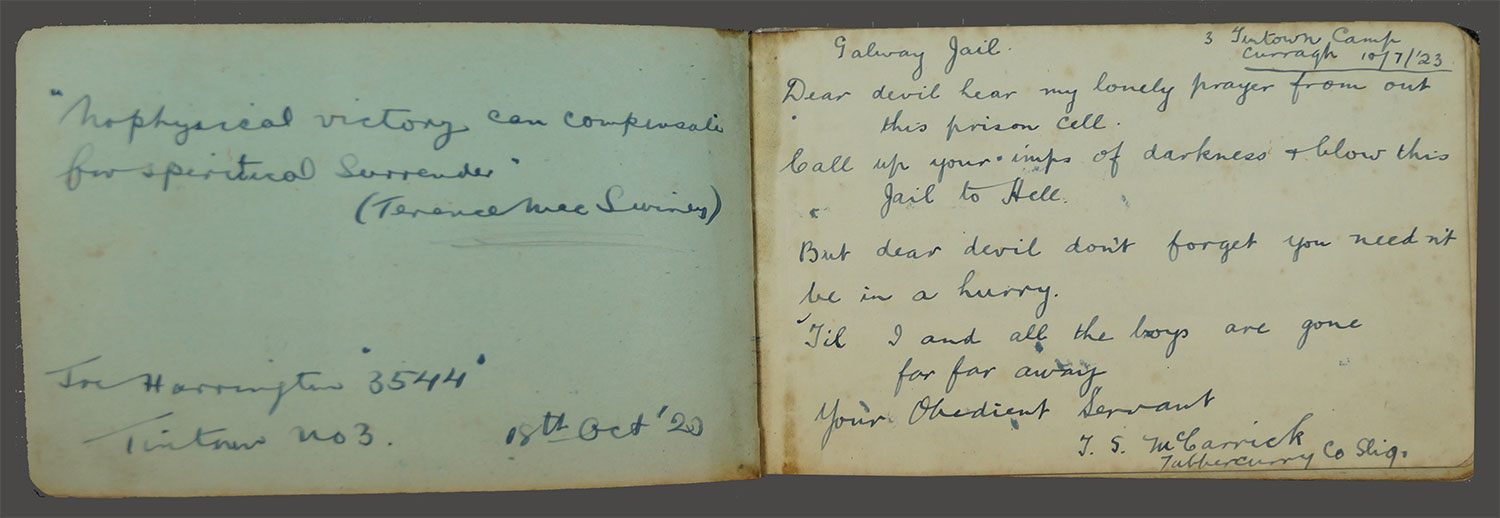 "No physical victory can compensate
for spiritual Surrender"
(Terence Mac Swiney)
Joe Harrington "3544"
Tintown No 3. 18th Oct '23
Galway Jail.
3 Tintown Camp
Curragh 10/7/'23
Dear devil hear my lonely prayer from out
this prison cell.
Call up your imps of darkness & blow this
Jail to Hell.
But dear devil don't forget you need n't
be in a hurry.
'Til I and all the boys are gone
far far away
Your Obedient Servant
T. S. McCarrick
Tubbercurry Co Sligo